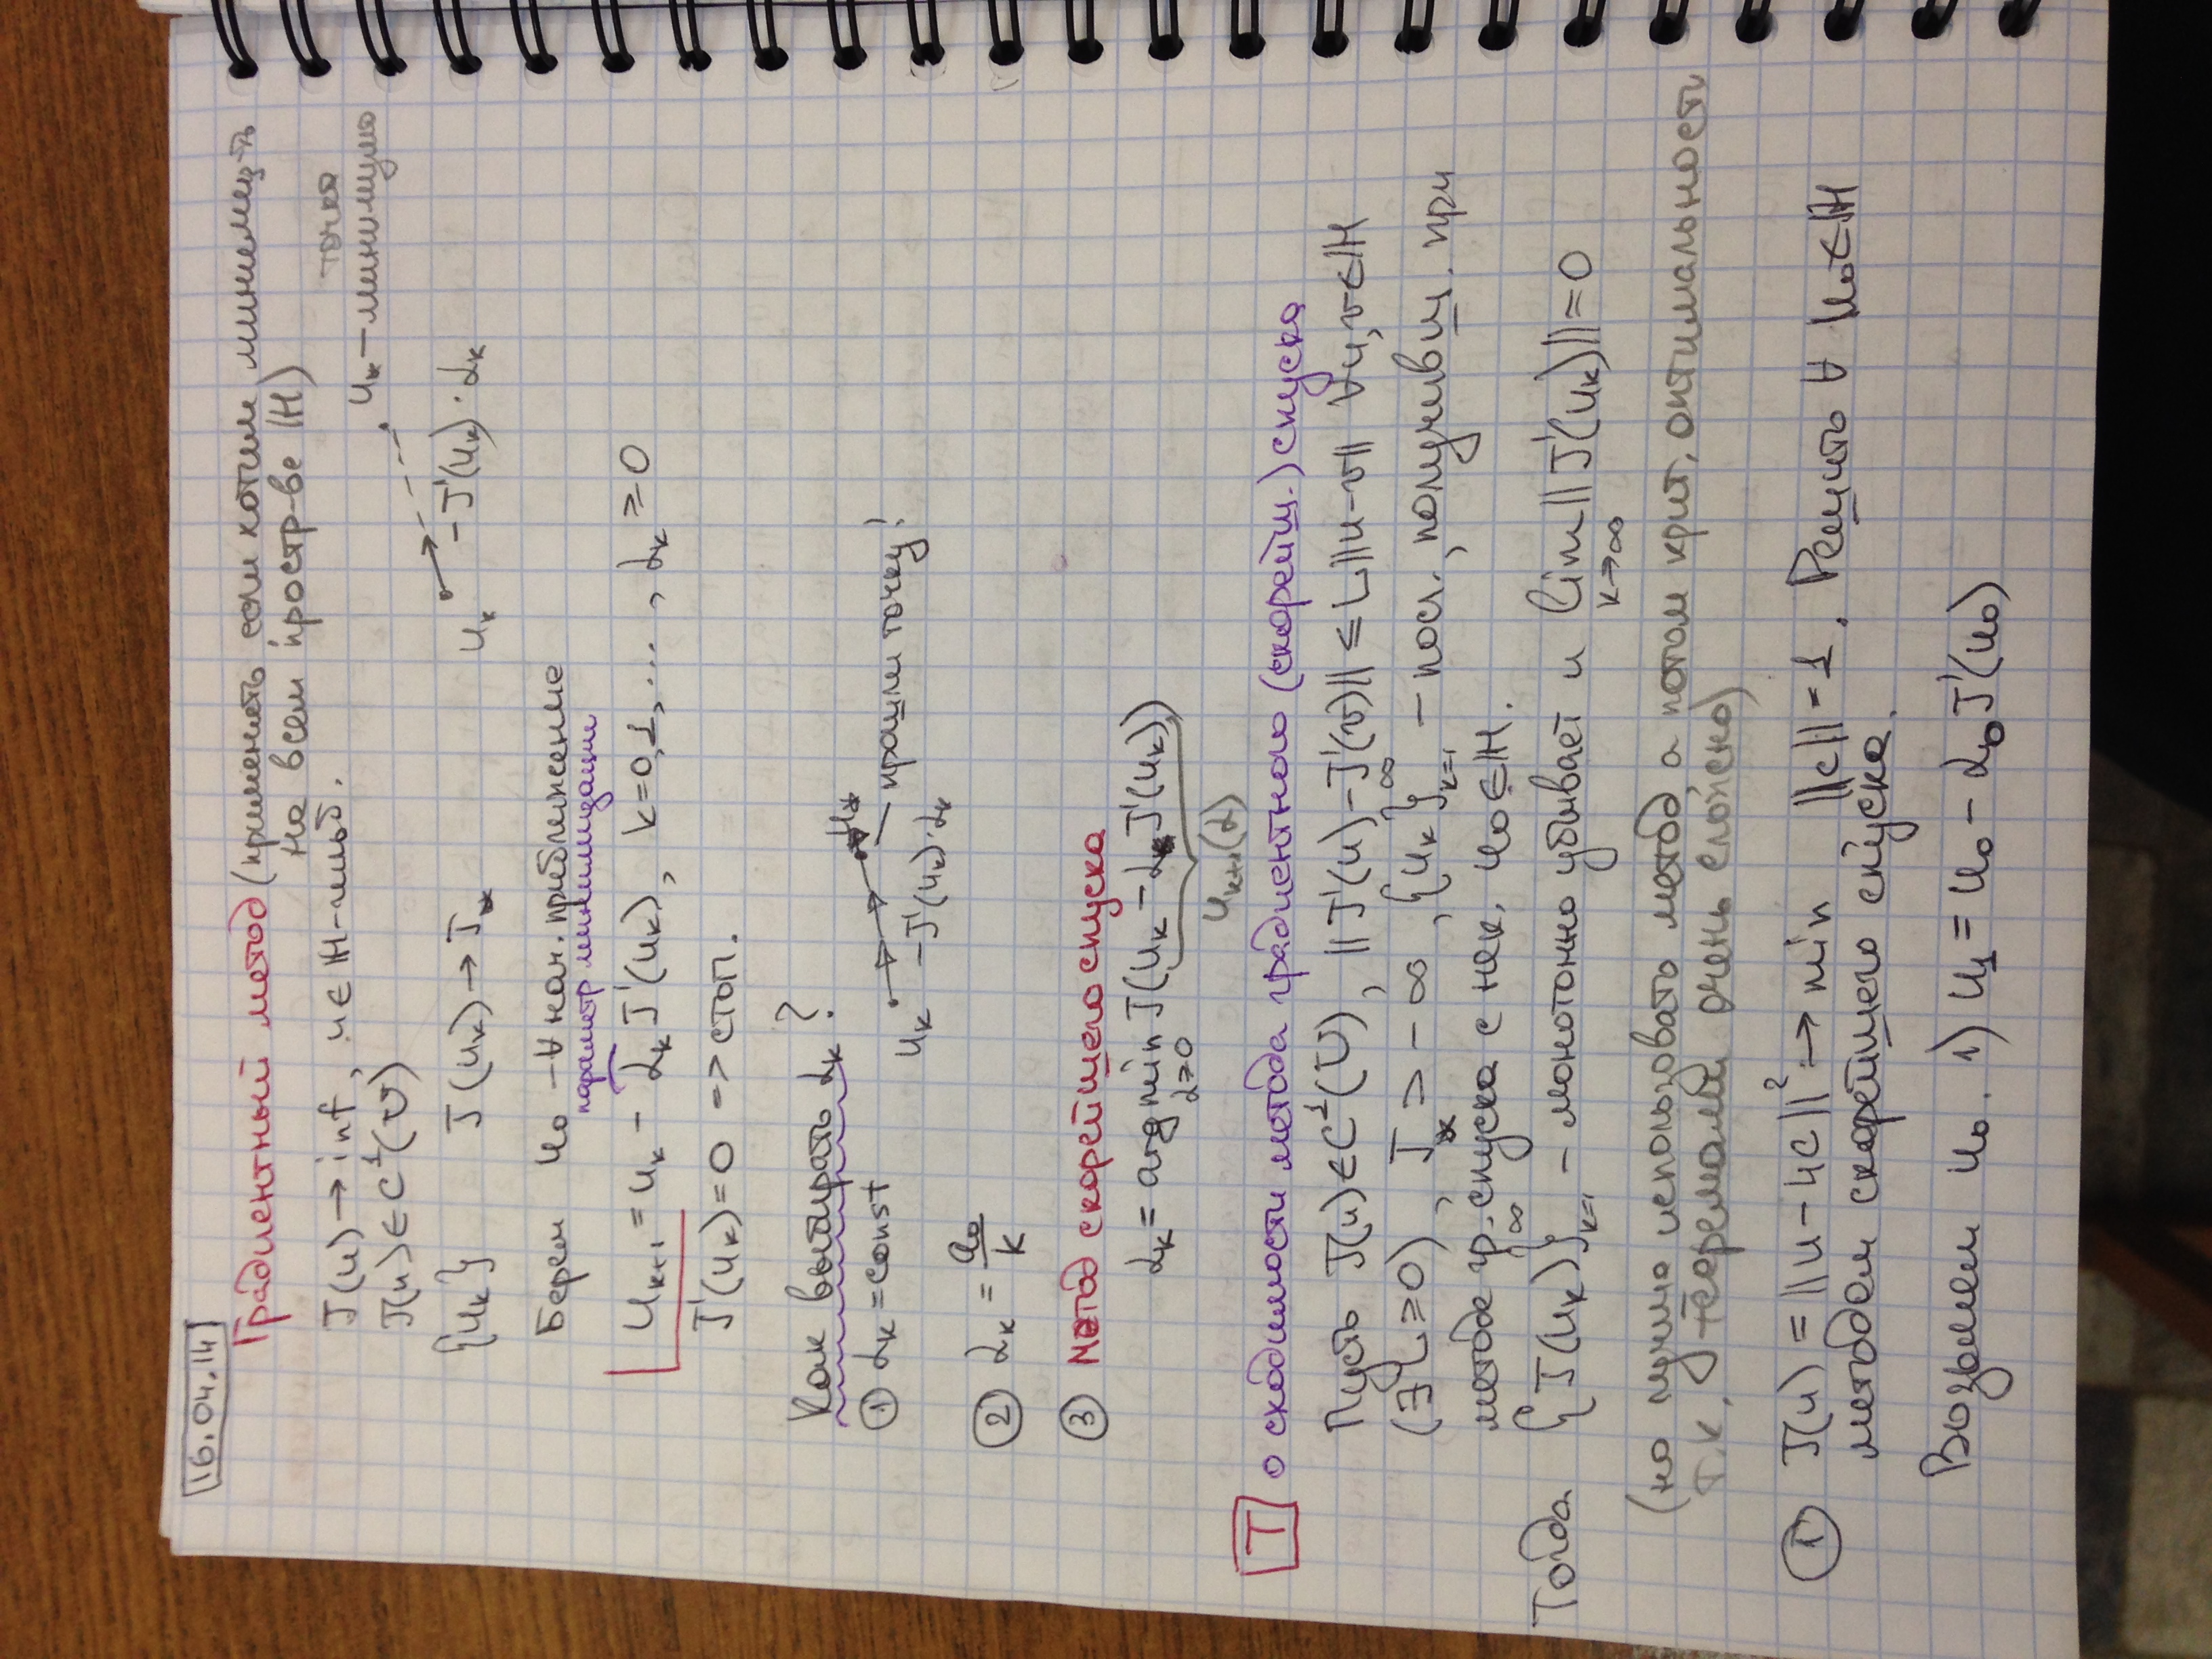 16.04.14
Градиентный метод (применять если хотим минимиз-ть
на всем простр-ве ℍ)
J(u) → inf, u ∈ ℍ-гильб.
J(u) ∈ C¹(U)
точка
u* – минимума
{u_k} J(u_k) → J*
u_k -J'(u_k)·α_k
Берем u₀ – ∀ нач. приближение
параметр минимизации
u_{k+1} = u_k - α_k J'(u_k), k=0,1,..., α_k ≥ 0
J'(u_k)=0 => стоп.
Как выбирать α_k?
① α_k = const
u_k -J'(u_k)·α_k u*
прошли точку!
② α_k = a₀/k
③ Метод скорейшего спуска
α_k = argmin J(u_k - α J'(u_k))
α≥0
u_{k+1}(α)
T о сходимости метода градиентного (скорейш.) спуска
Пусть J(u) ∈ C¹(U), ||J'(u)-J'(v)|| ≤ L||u-v|| ∀u,v∈ℍ
(∃ L≥0), J* > -∞, {u_k}_{k=1}^∞ – посл., получивш. при
методе гр. спуска с нек. u₀∈ℍ.
Тогда {J(u_k)}_{k=1}^∞ – монотонно убывает и lim_{k→∞} ||J'(u_k)||=0
(но лучше использовать метод а потом крит. оптимальности
т.к. с теоремами очень сложно)
① J(u) = ||u-4c||² → min ||c||=1. Решить ∀ u₀∈ℍ
методом скорейшего спуска.
Возьмем u₀. 1) u₁ = u₀ - α₀J'(u₀)